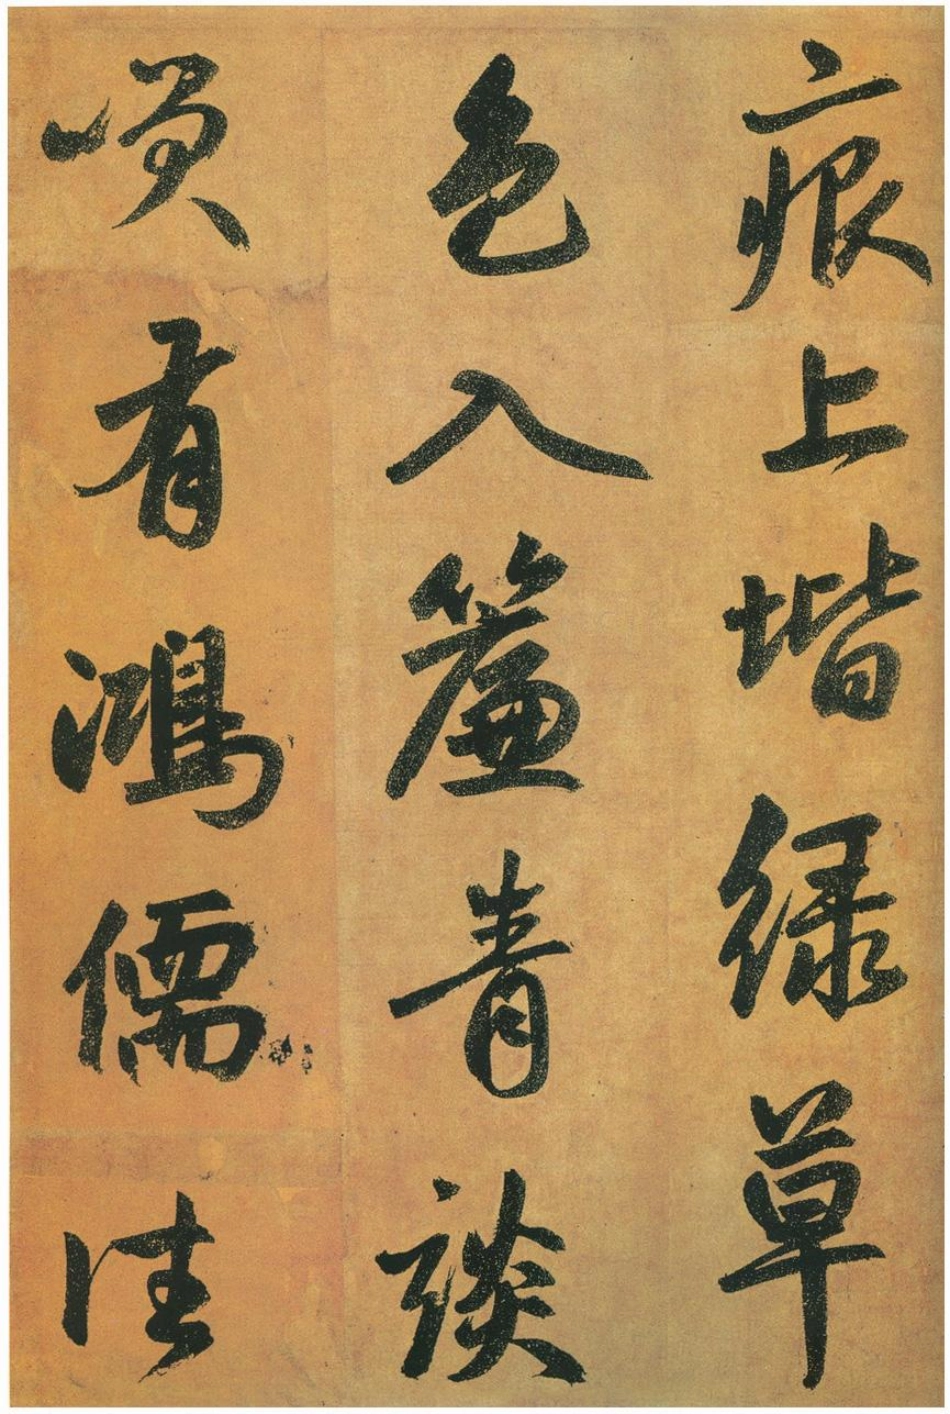 痕上堦緑草
色入簾青談
唉有鴻儒往